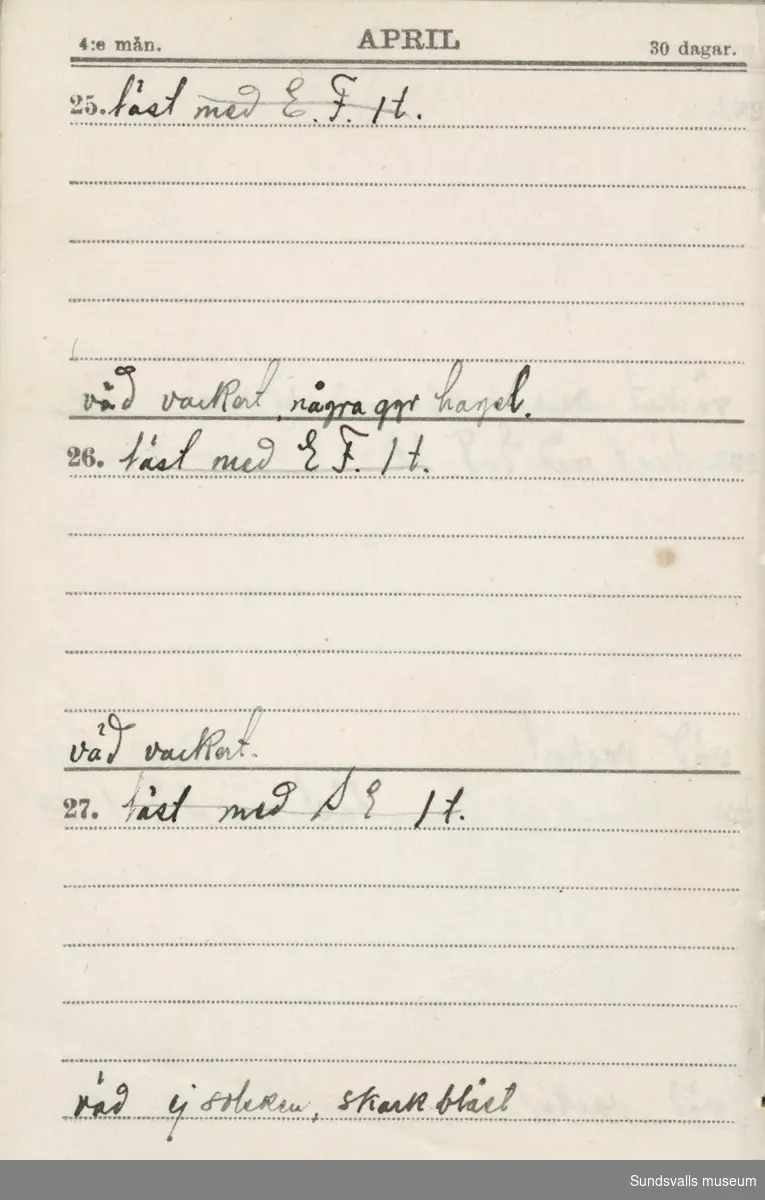 4:e mån. APRIL 30 dagar.
25. läst med E. F. 1 t.
väd vackert, några ggr hagel.
26. läst med E F. 1 t.
väd vackert.
27. läst med S E 1 t.
väd ej solsken, stark blåst
Sundsvalls museum